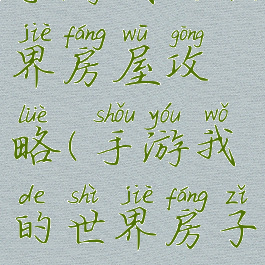 jiè fáng wū gōng
界房屋攻
lüè shǒu yóu wǒ
略(手游我
de shì jiè fáng zǐ
的世界房子